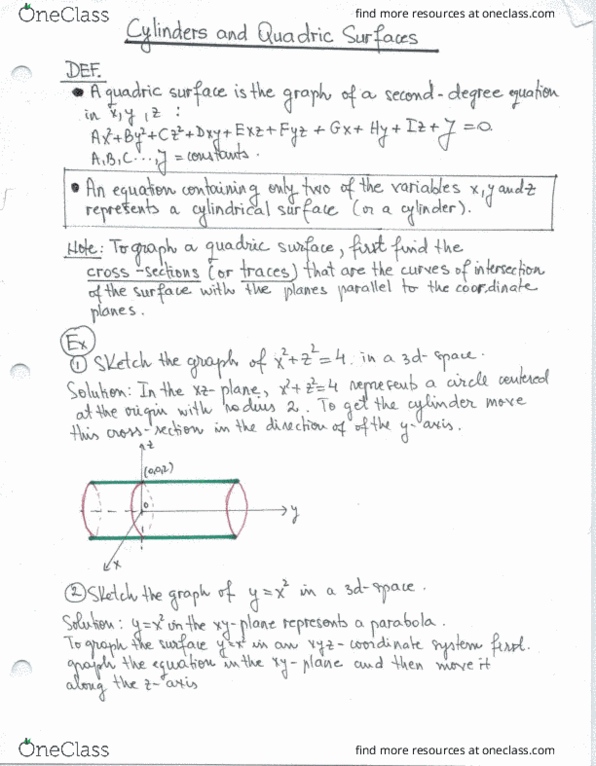 OneClass
find more resources at oneclass.com
Cylinders and Quadric Surfaces
DEF.
• A quadric surface is the graph of a second-degree equation
in x, y, z :
Ax²+By²+Cz²+Dxy+Exz+Fyz+Gx+Hy+Iz+J=0.
A,B,C...,J = constants.
• An equation containing only two of the variables x,y and z
represents a cylindrical surface (or a cylinder).
Note: To graph a quadric surface, first find the
cross-sections (or traces) that are the curves of intersection
of the surface with the planes parallel to the coordinate
planes.
Ex
① Sketch the graph of x²+z²=4. in a 3d-space.
Solution: In the xz-plane, x²+z²=4 represents a circle centered
at the origin with radius 2. To get the cylinder move
this cross-section in the direction of of the y-axis.
z
(0,0,2)
0
y
x
② Sketch the graph of y=x² in a 3d-space.
Solution: y=x² in the xy-plane represents a parabola.
To graph the surface y=x² in an xyz-coordinate system first.
graph the equation in the xy-plane and then move it
along the z-axis
OneClass
find more resources at oneclass.com